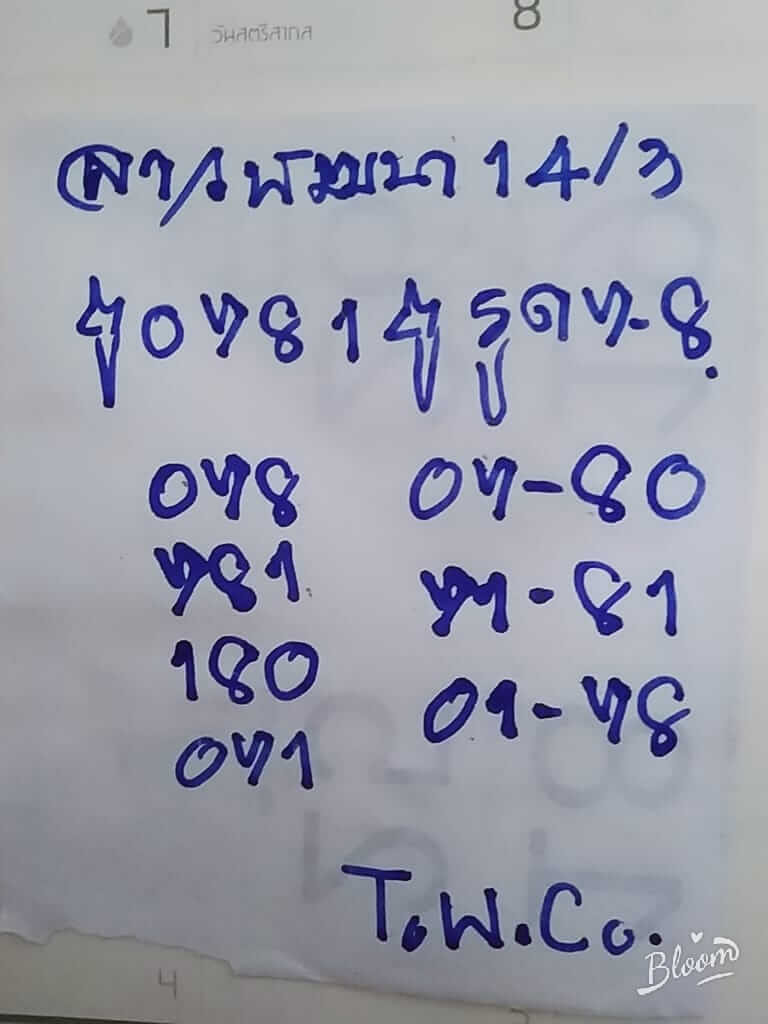 7 วันสตรีสากล 8
ลาวพัฒนา 14/3
0781 รูด 7-8.
078 07-80
781 71-81
180 01-78
071
T.W.Co.
Bloom
4